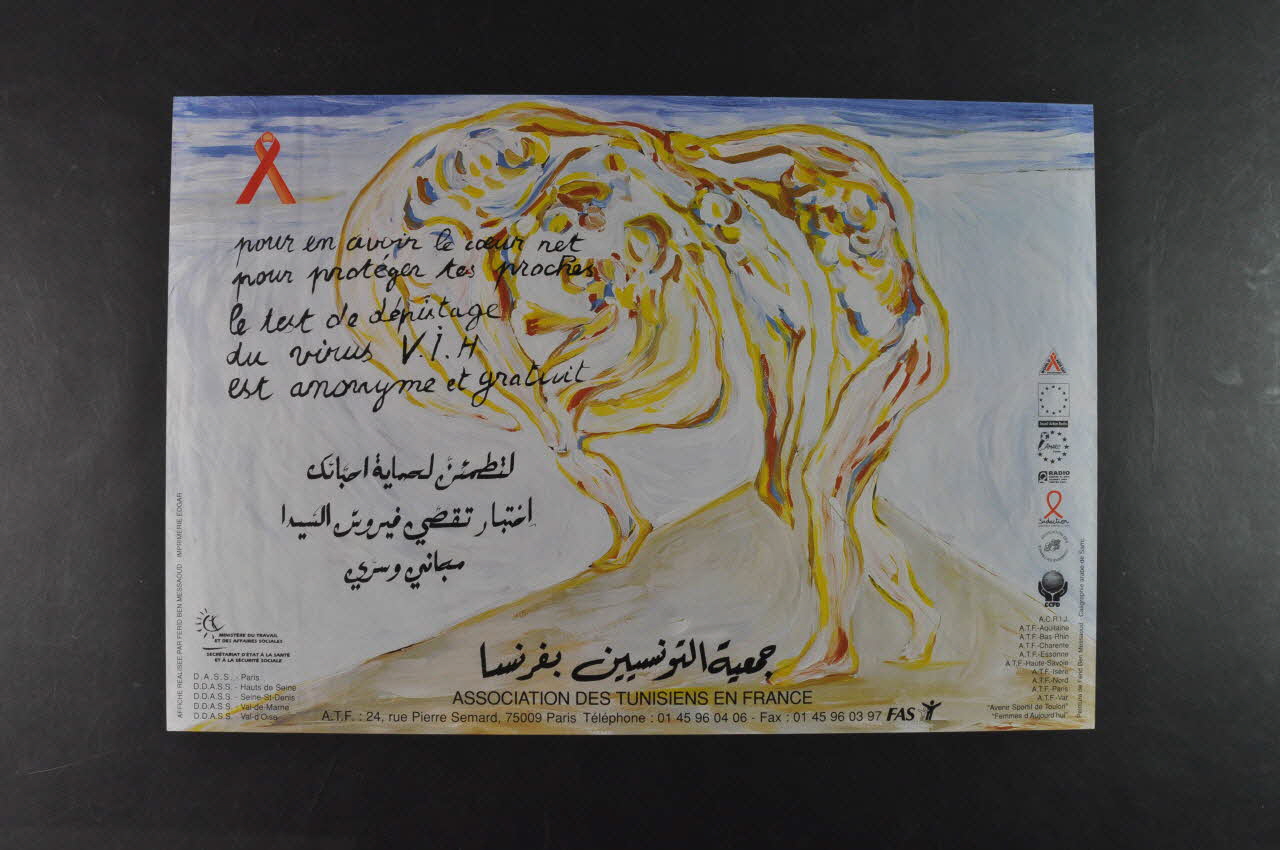 pour en avoir le cœur net
pour protéger tes proches
le test de dépistage
du virus V.I.H
est anonyme et gratuit
لتطمئن لحماية احبائك
اختبار تقصّي فيروس السيدا
مجاني وسرّي
AFFICHE REALISEE PAR FERID BEN MESSAOUD - IMPRIMERIE EDGAR
MINISTÈRE DU TRAVAIL
ET DES AFFAIRES SOCIALES
SECRÉTARIAT D'ÉTAT À LA SANTÉ
ET À LA SÉCURITÉ SOCIALE
D.A.S.S. - Paris
D.D.A.S.S. - Hauts de Seine
D.D.A.S.S. - Seine-St-Denis
D.D.A.S.S. - Val-de-Marne
D.D.A.S.S. - Val-d'Oise
جمعية التونسيين بفرنسا
ASSOCIATION DES TUNISIENS EN FRANCE
A.T.F. : 24, rue Pierre Semard, 75009 Paris Téléphone : 01 45 96 04 06 - Fax : 01 45 96 03 97 FAS
RADIO
Sidaction
CCFD
A.C.R.I.J.
A.T.F.-Aquitaine
A.T.F.-Bas Rhin
A.T.F.-Charente
A.T.F.-Essonne
A.T.F.-Haute-Savoie
A.T.F.-Isère
A.T.F.-Nord
A.T.F.-Paris
A.T.F.-Var
"Avenir Sportif de Toulon"
"Femmes d'Aujourd'hui"
Peinture de Ferid Ben Messaoud - Calligraphie arabe de Sami